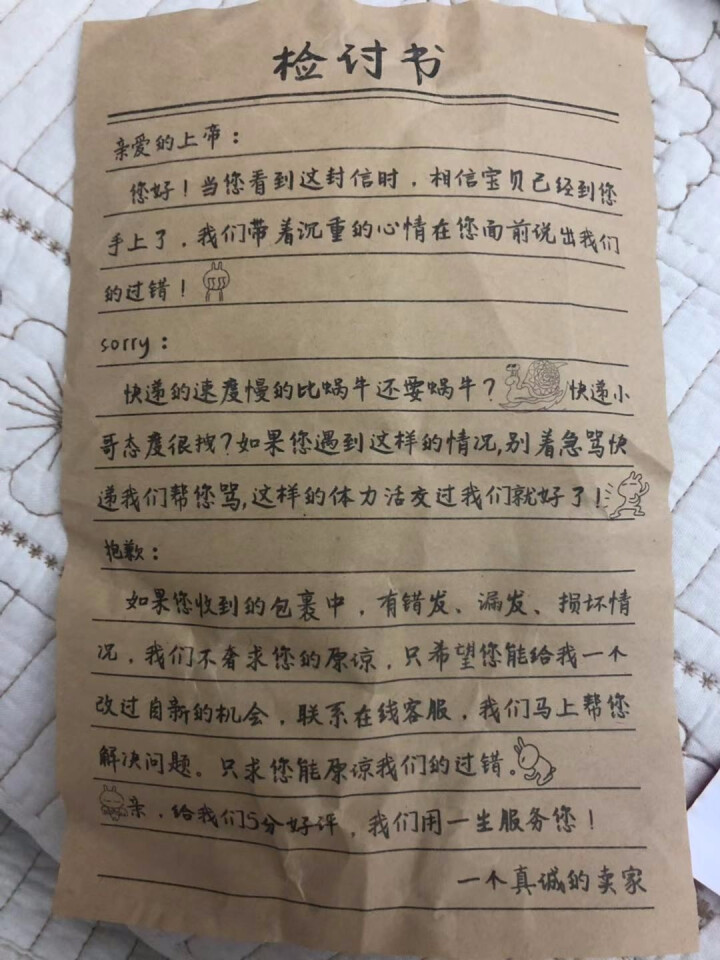 检讨书
亲爱的上帝：
您好！当您看到这封信时，相信宝贝已经到您
手上了，我们带着沉重的心情在您面前说出我们
的过错！
sorry：
快递的速度慢的比蜗牛还要蜗牛？快递小
哥态度很拽？如果您遇到这样的情况,别着急骂快
递我们帮您骂,这样的体力活交过我们就好了！
抱歉：
如果您收到的包裹中，有错发、漏发、损坏情
况，我们不奢求您的原谅，只希望您能给我一个
改过自新的机会，联系在线客服，我们马上帮您
解决问题。只求您能原谅我们的过错。
亲，给我们5分好评，我们用一生服务您！
一个真诚的卖家